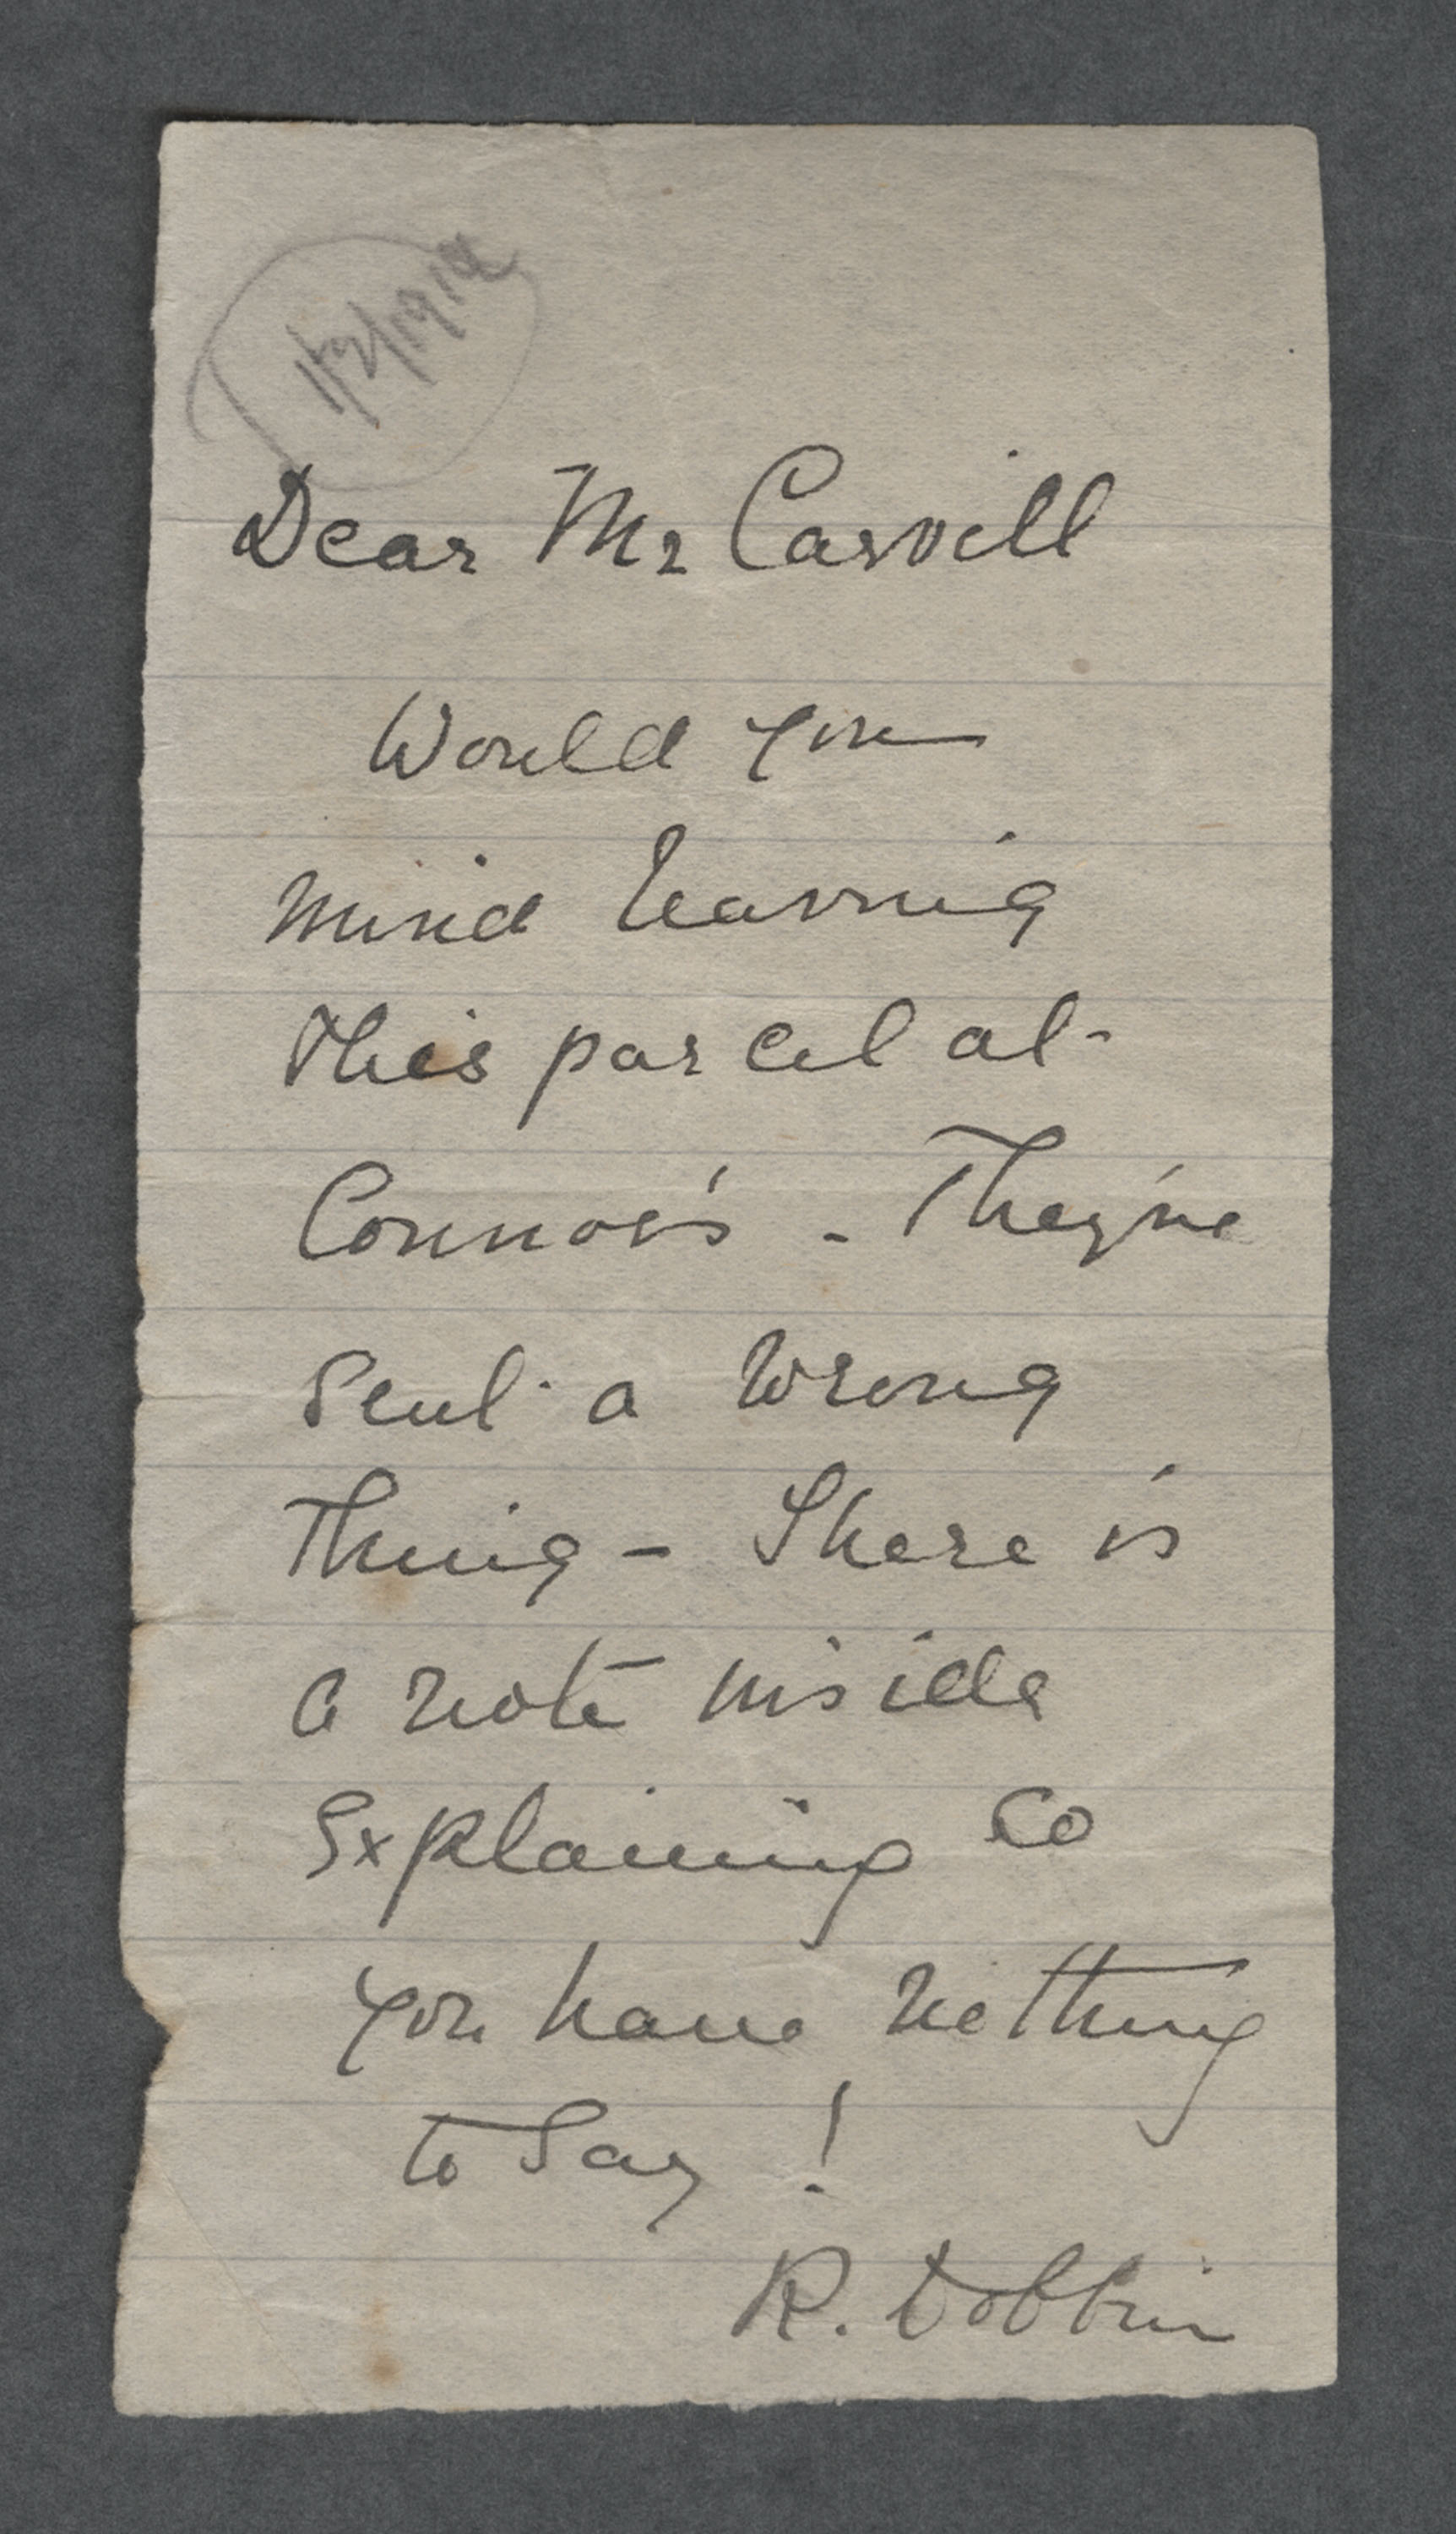 Dear Mr Carvill
Would you
mind leaving
this parcel at
Connor's - They've
sent a wrong
thing - There is
a note inside
Explaining so
you have nothing
to say !
R. Dobbin